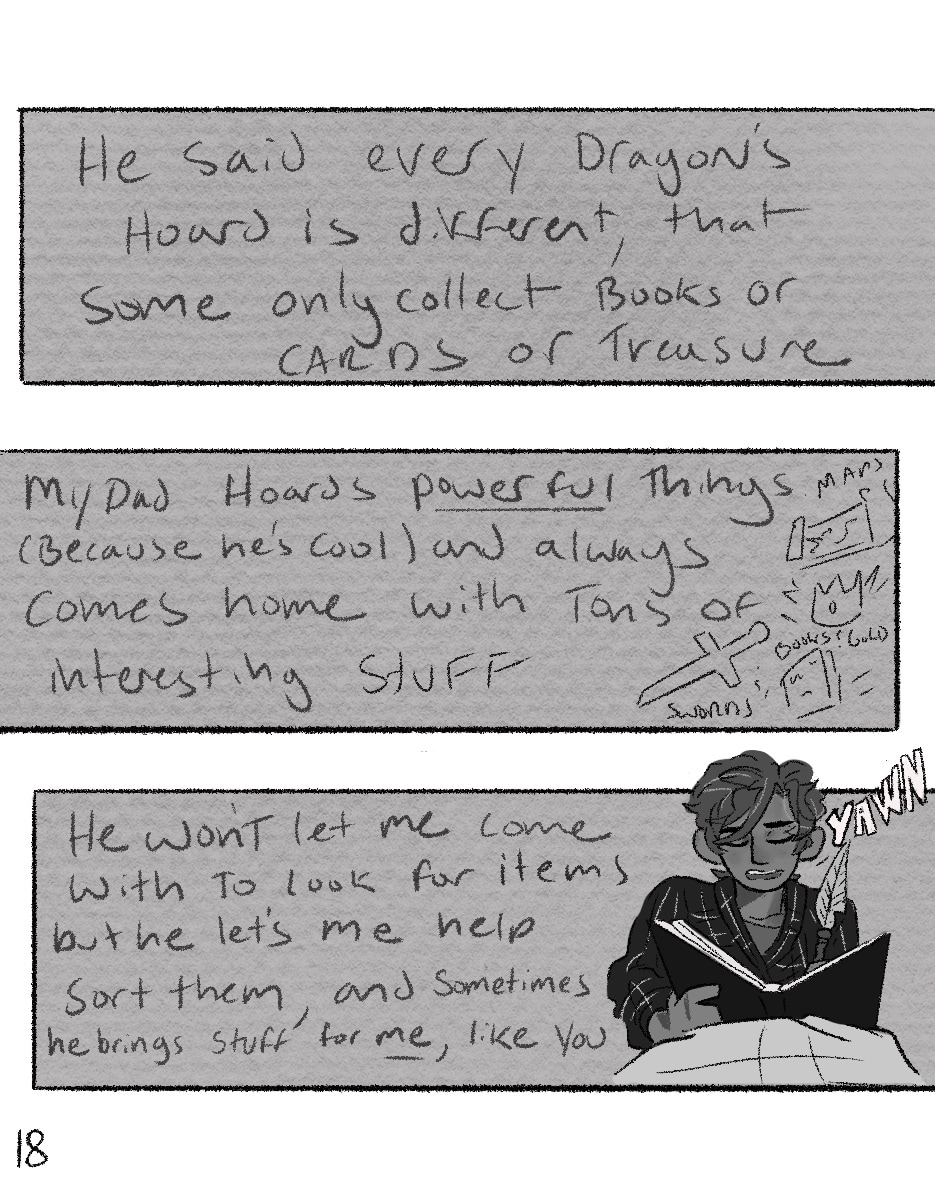 He said every Dragon's
Hoard is different, that
some only collect Books or
CARDS or Treasure
My Dad Hoards powerful Things
(Because he's cool) and always
comes home with Tons of
interesting STUFF
MAPS
Books & Gold
SWORDS
He won't let me come
with To look for items
but he let's me help
sort them, and sometimes
he brings stuff for me, like you
YAWN
18